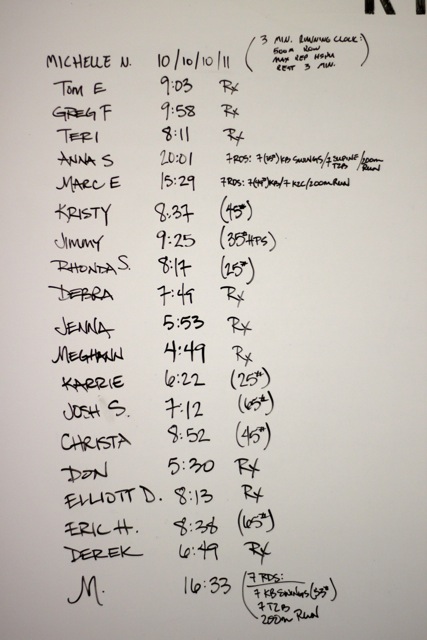 MICHELLE N. 10/10/10/11 (3 MIN. RUNNING CLOCK:
500M ROW
MAX REP HSPU
REST 3 MIN.)
TOM E 9:03 Rx
GREG F 9:58 Rx
TERI 8:11 Rx
ANNA S 20:01 7 RDS: 7 KB SWINGS/7 SUPINE T2B/200m RUN
MARC E 15:29 7 RDS: KB/7 K2C/200m RUN
KRISTY 8:37 (45#)
JIMMY 9:25 (35# HPS)
RHONDA S. 8:17 (25#)
DEBRA 7:49 Rx
JENNA 5:53 Rx
MEGHANN 4:49 Rx
KARRIE 6:22 (25#)
JOSH S. 7:12 (65#)
CHRISTA 8:52 (45#)
DON 5:30 Rx
ELLIOTT D. 8:13 Rx
ERIC H. 8:38 (65#)
DEREK 6:49 Rx
M. 16:33 (7 RDS:
7 KB SWINGS (35#)
7 T2B
200m RUN)